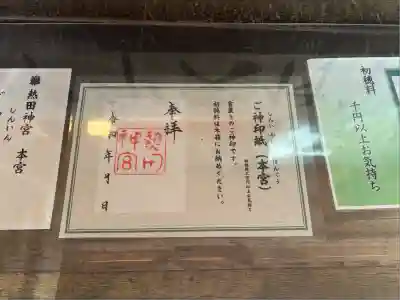 初穂料
千円以上お気持ち
ご神印紙(本宮)
しんいんし
ほんぐう
書置きのご神印です。
初穂料は木箱にお納めください。
奉拝
令和 年 月 日
熱田神宮 本宮
しんいん